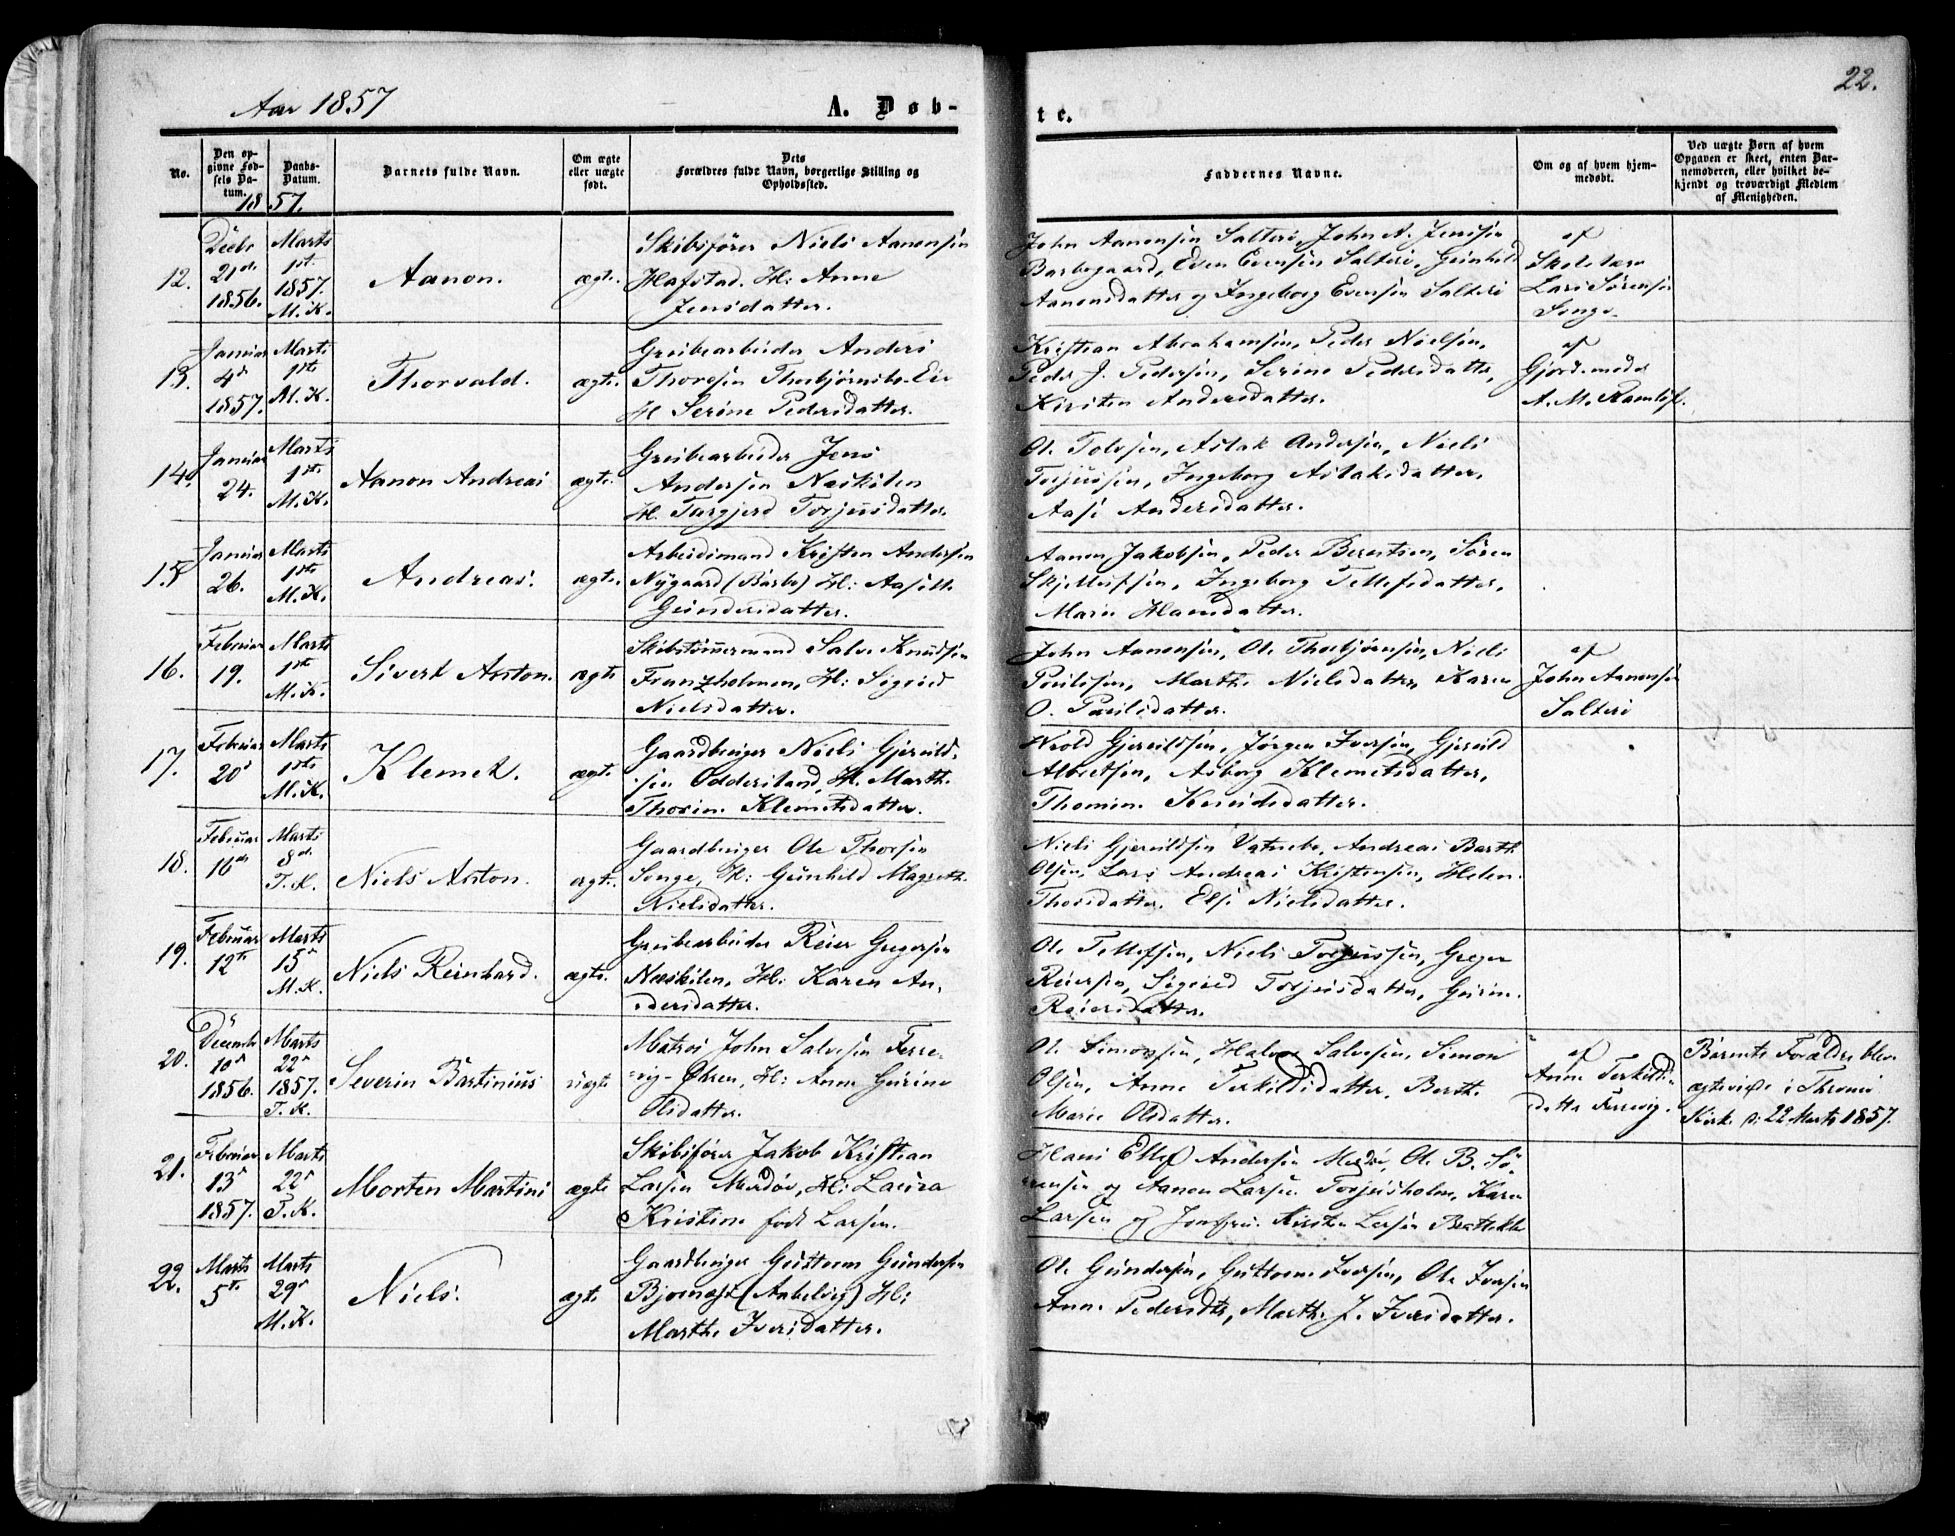 22.
Aar 1857
A. Døb-
te.
No.
Den op-
givne Fød-
sels Da-
tum.
Daabs-
Datum.
Barnets fulde Navn.
Om ægte
eller uægte
født.
Dets
Forældres fulde Navn, borgerlige Stilling og
Opholdssted.
Faddernes Navne.
Om og af hvem hjem-
medøbt.
Ved uægte Børn af hvem
Opgaven er skeet, enten Bar-
nemoderen, eller hvilket be-
kjendt og troværdigt Medlem
af Menigheden.
1857.
12.
Decbr
21de
1856.
Marts
1ste
1857.
M.K.
Aanon.
ægte.
Skibsfører Niels Aanonsen
Hafstad. H: Anne
Jensdatter.
John Aanonsen Salterø, John A. Jensen
Barbogaard, Even Evensen Salterø, Gunhild
Aanonsdatter og Ingeborg Evensen Salterø
af
Skolelærer
Lars Sørensen
Songe.
13.
Januar
4de
1857.
Marts
1ste
M.K.
Thorvald.
ægte.
Grubearbeider Anders
Thoresen Thorbjørnsbo. Eie
H. Serine Pedersdatter.
Kristian Abrahamsen, Peder Nielsen,
Peder J. Pedersen, Serine Pedersdatter,
Kirsten Andersdatter.
af
Gjordemoder
A. M. Ramløs.
14.
Januar
24.
Marts
1ste
M.K.
Aanon Andreas
ægte.
Grubearbeider Jens
Andersen Næskilen
H. Turgjerd Torjusdatter.
Ole Tolvsen, Aslak Andersen, Niels
Torjussen, Ingeborg Aslaksdatter,
Aase Andersdatter.
15.
Januar
26.
Marts
1ste
M.K.
Andreas.
ægte.
Arbeidsmand Kristen Andersen
Nygaard (Barbo) H: Aaseth
Gundersdatter.
Aanon Jakobsen, Peder Berentsen, Søren
Skjellufsen, Ingeborg Tellefsdatter,
Maren Hansdatter.
16.
Februar
19.
Marts
1ste
M.K.
Sivert Anton.
ægte
Skibstømmermand Salve Knudsen
Franzholmen, H: Sigrid
Nielsdatter.
John Aanonsen, Ole Thorbjørnsen, Niels
Poulssen, Marthe Nielsdatter, Karen
O. Poulsdatter.
af
John Aanonsen
Salterø
17.
Februar
20de
Marts
1ste
M.K.
Klemet.
ægte
Gaardbruger Niels Gjeruld-
sen Oddersland, H. Marthe
Thorine Klemetsdatter.
Wrold Gjeruldsen, Jørgen Iversen, Gjeruld
Albretsen, Asborg Klemetsdatter,
Thomine Knudsdatter.
18.
Februar
16de
Marts
8de
T.K.
Niels Anton.
ægte.
Gaardbruger Ole Thorsen
Songe, H: Gunhild Magrethe
Nielsdatter.
Niels Gjeruldsen Vatnebo, Andreas Barth
Olsen, Lars Andreas Kristensen, Helene
Thorsdatter. Else Nielsdatter.
19.
Februar
12te
Marts
15de
M.K.
Niels Reinhard.
ægte.
Grubearbeider Reier Gregersen
Næskilen, H: Karen An-
dersdatter.
Ole Tellefsen, Niels Torjussen, Greger
Reiersen, Sigrid Torjusdatter, Gurine
Reiersdatter.
20.
Decembr
10de
1856.
Marts
22de
1857.
T.K.
Severin Bastinius
uægte
Matros John Salvesen Ferre-
vig-Øhren, H: Anne Gurine
Olsdatter.
Ole Simonsen, Halvor Salvesen, Simon
Olsen, Anne Terkildsdatter, Berthe
Marie Olsdatter.
af
Anne Terkilds-
datter Ferrevig.
Barnets Forældre blev
ægteviede i Thromø
Kirke d: 22 Marts 1857.
21.
Februar
13de
1857.
Marts
22de
T.K.
Morten Martini
ægte
Skibsfører Jakob Kristian
Larsen Merdøe, H: Laura
Kristine født Larsen.
Hans Ellef Andersen Merdø, Ole B. Sø-
rensen og Aanon Larsen Torjusholm, Karen
Larsen og Jomfru Kirsten Larsen
22.
Marts
5te
Marts
29de
M.K.
Niels.
ægte
Gaardbruger Guttorm Gundersen
Bjørnæs (Aakelvig) H:
Marthe Iversdatter.
Ole Gundersen, Guttorm Iversen, Ole Iversen
Anne Pedersdtr, Marthe J. Iversdatter.